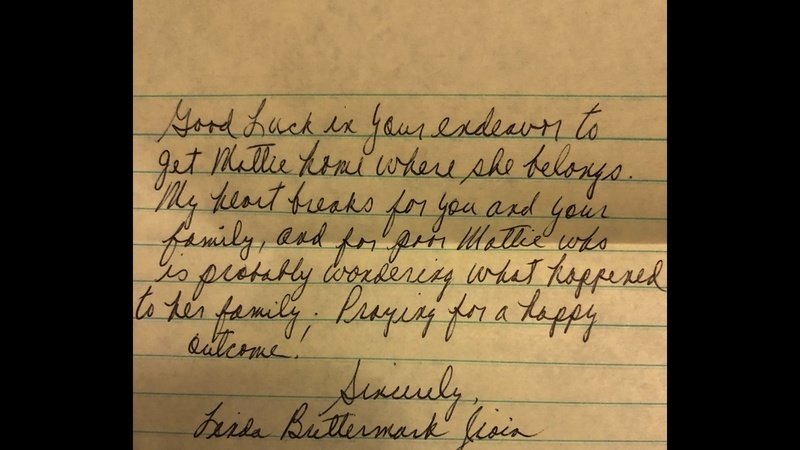 Good Luck in your endeavor to
get Mattie home where she belongs.
My heart breaks for you and your
family, and for poor Mattie who
is probably wondering what happened
to her family. Praying for a happy
outcome!
Sincerely,
Linda Bruttermark Gioia